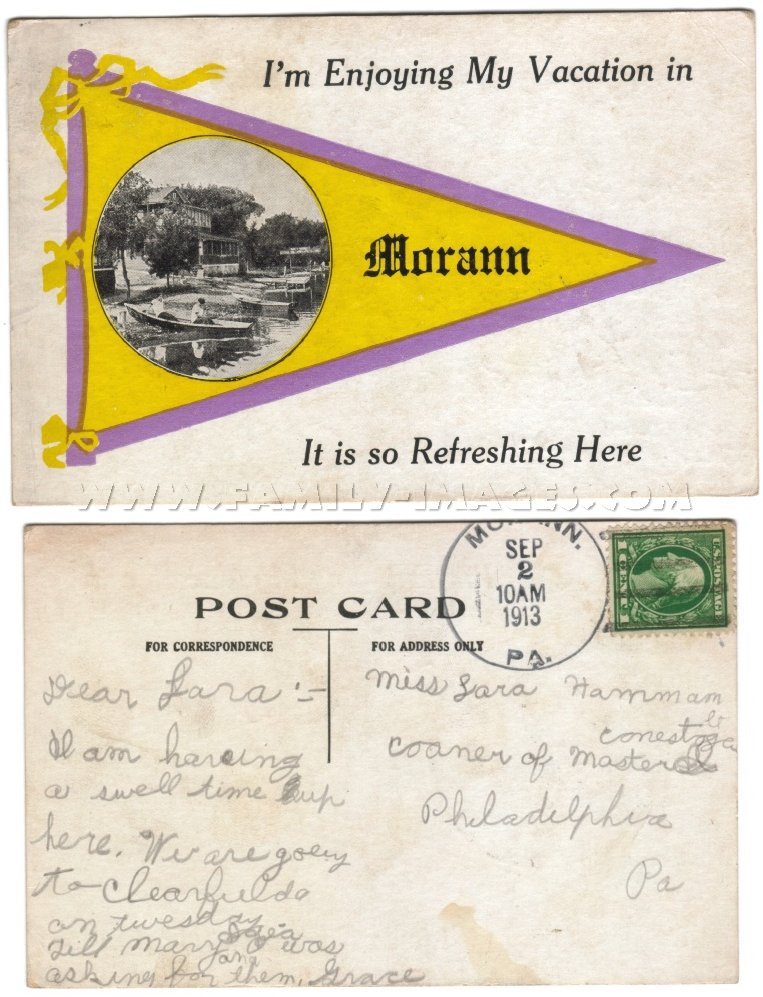 I'm Enjoying My Vacation in
Morann
It is so Refreshing Here
WWW.FAMILY-IMAGES.COM
MORANN.
SEP
2
10AM
1913
PA.
U.S. POSTAGE
1 CENT 1
POST CARD
FOR CORRESPONDENCE
FOR ADDRESS ONLY
Dear Sara :-
I am having
a swell time up
here. We are going
to Clearfield
on tuesday
till Mary and
I was
asking for them, Grace
Miss Sara Hammam
conestoga
coaner of Master
Philadelphia
Pa